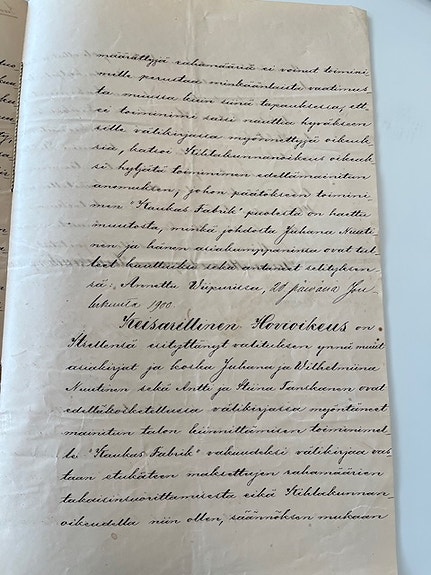 määrättyjä rahamääriä ei voinut toimini
melle perustaa minkäänlaista vaatimus
ta muussa kuin siinä tapauksessa, ett
ei toiminimi saisi nauttia hyväksen
sille välikirjassa myönnettyjä oikeuk
sia, katsoi Kihlakunnanoikeus oikeuk
si hyljätä toiminimen edellämainitun
anomuksen, johon päätökseen toimini
men "Kaukas Fabrik" puolesta on haettu
muutosta, minkä johdosta Juhana Nuuti
nen ja hänen asiakumppaninsa ovat tul
leet kuulluiksi sekä antaneet selityksen
sä. Annettu Viipurissa, 20 päivänä Jou
lukuuta 1900.
Keisarillinen Hovioikeus on
itsellensä esityttänyt valituksen ynnä muut
asiakirjat ja koska Juhana ja Wilhelmiina
Nuutinen sekä Antti ja Stiina Tanskanen ovat
edelläkosketellussa välikirjassa myöntäneet
mainitun talon kiinnittämisen toiminimel
le "Kaukas Fabrik" vakuudeksi välikirjaa vas
taan etukäteen maksettujen rahamäärien
takaisinsuorittamisesta eikä Kihlakunnan-
oikeudella niin ollen, säännöksen mukaan